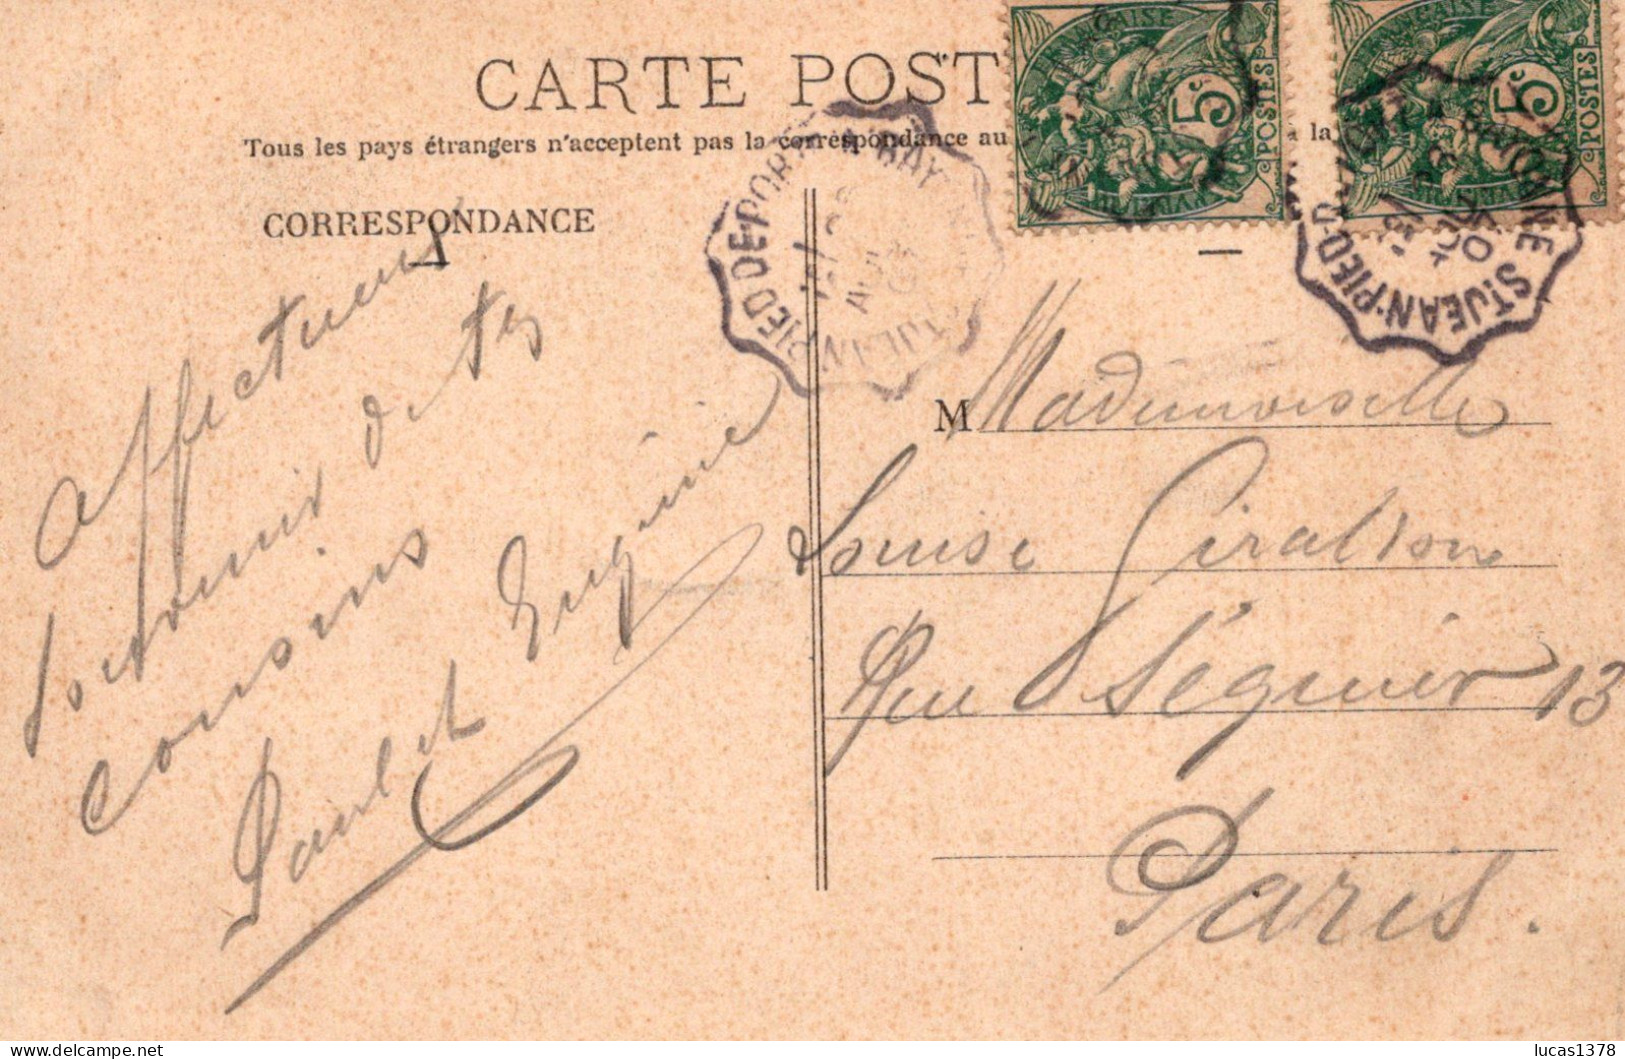 CARTE POST
Tous les pays étrangers n'acceptent pas la correspondance au
à la
CORRESPONDANCE
ÇAISE
5c
POSTES
5c
POSTES
ST JEAN-PIED-D
BAYONNE
PIED DE PORT
BAY
Affectueux
souvenir de tes
cousins
Paul et Eugénie
M Mademoiselle
Louise Giralson
Rue Séguier 13
Paris.
lucas1378